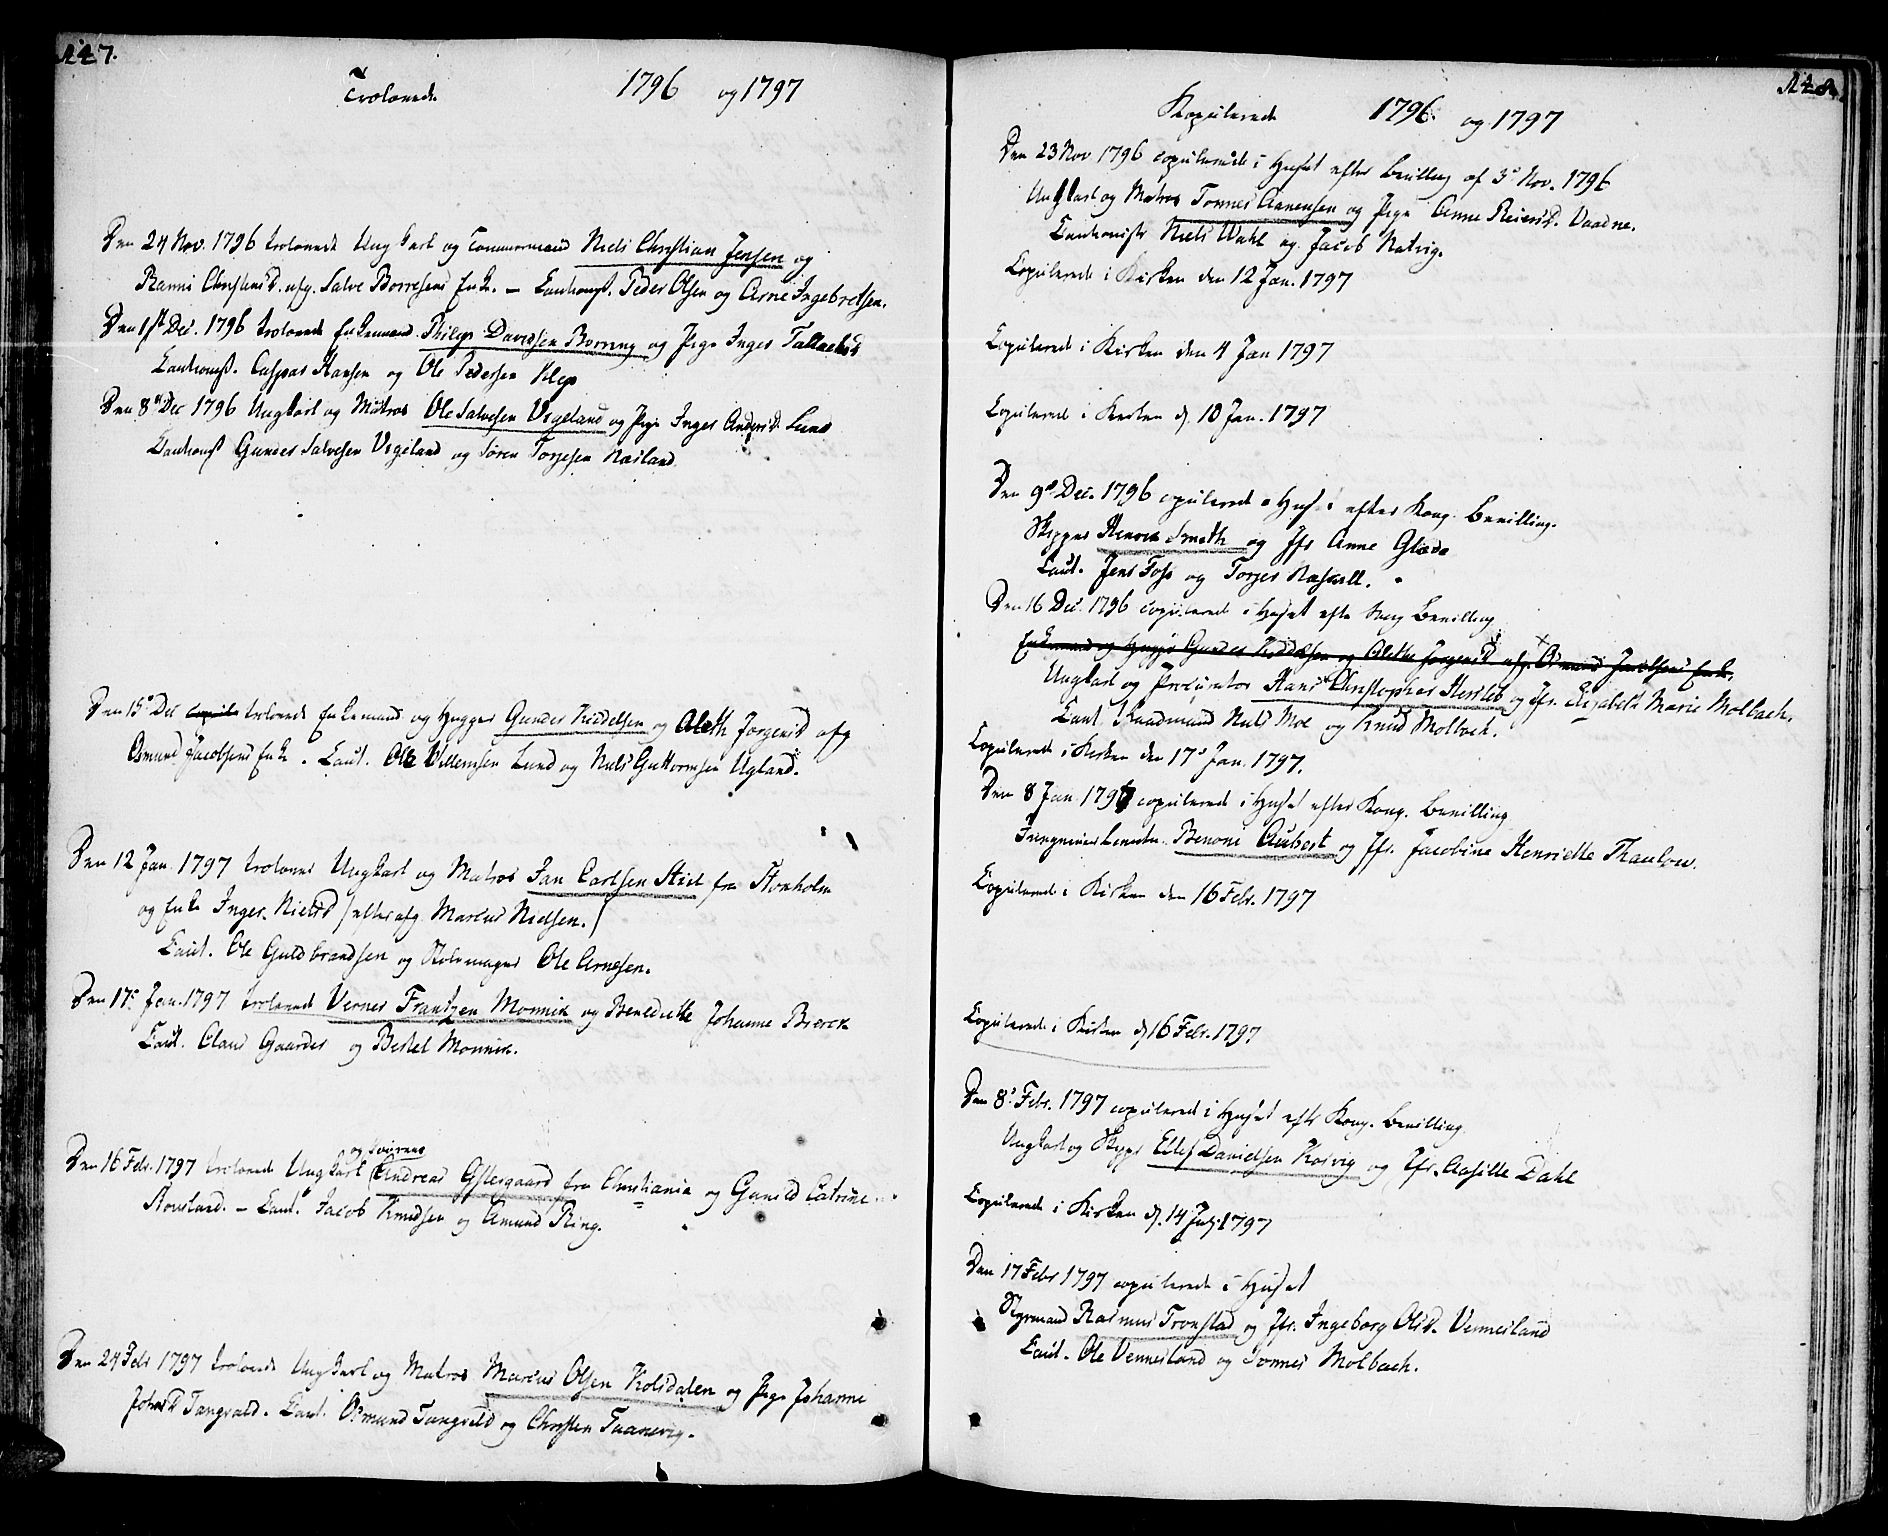 147.
Trolovede 1796 og 1797
Den 24 Nov. 1796 trolovede Ungkarl og Tømmermand Niels Christian Jensen og
Ranni Christensd. afg. Salve Børresens Enke. – Cautionist. Peder Olsen og Arne Ingebretsen.
Den 1st Dec. 1796 trolovede Enkemand Philip Davidsen Borreng og Pige Inger Tallachsd
Cautionist. Caspar Hansen og Ole Pedersen Klep
Den 8de Dec 1796 Ungkarl og Matros Ole Salvesen Vegeland og Pige Inger Andersd. Lund
Cautionist Gunder Salvesen Vegeland og Søren Torjesen Næsland.
Den 15de Dec copule trolovede Enkemand og Hugger Gunder Kiddelsen og Aleth Jørgensd afg
Osmund Jacobsens Enke. Caut. Ole Villemsen Lund og Niels Guttormsen Ugland.
Den 12 Jan. 1797 trolovet Ungkarl og Matros Jan Carlsen Stiel fra Stokholm
og Enke Inger Nielsd (efter afg Marcus Nielsen.)
Caut. Ole Guldbrandsen og Stolemager Ole Arnesen.
Den 17de Jan. 1797 trolovede Verner Frantzen Monnik og Benedicte Johanne Bierck
Caut. Claus Gaarder og Bertel Monnik.
og
Den 16 Febr. 1797 trolovede Ungkarl Andreas Østergaard fra Christiania og Gunild Catrine
Stousland. – Caut. Jacob Knudsen og Amund Ring.
Den 24 Febr 1797 trolovede Ungkarl og Matros Marcus Olsen Kolsdalen og Pige Johanne
Johansd Tangvald. Caut. Osmund Tangvald og Christen Taanevig.
148.
Kopulerede 1796 og 1797
Den 23 Nov 1796 copulerede i Huset efter Bevilling af 3de Nov. 1796
Ungkarl og Matros Tønnes Aanensen og Pige Anne Reiersd. Vaadne.
Cautionister Niels Wahl og Jacob Natvig.
Copulerede i Kirken den 12 Jan. 1797
Copulerede i Kirken den 4 Jan 1797
Copulerede i Kirken d. 10 Jan. 1797
Den 9de Dec. 1796 copulerede i Huset efter Kong. Bevilling.
Skipper Henrik Smith og Jfr Anne Gløde
Caut. Jens Foss og Torjer Raswell.
Den 16 Dec. 1796 copulerede i Huset efter Kong Bevilling
Enkemand og Hugger Gunder Kiddelsen og Alethe Jørgensd afg. Osmund Jacobsens Enke.
Ungkarl og Procurator Hans Christopher Hersleb og Jfr. Elizabeth Marie Molbach.
Caut. Raadmand Niels Moe og Knud Molbach.
Copulerede i Kirken den 17de Jan. 1797.
Den 8 Jan 1797 copulerede i Huset efter Kong. Bevilling
Benoni Aubert og Jfr. Jacobine Henriette Thaulow.
Copulerede i Kirken den 16 Febr. 1797
Copulerede i Kirken d 16 Febr. 1797
Den 8de Febr. 1797 copulerede i Huset efter Kong. Bevilling
Ungkarl og Skipper Ellef Danielsen Korvig og Jfr. Aasille Dahl
Copulerede i Kirken d. 14 1797
Den 17 Febr 1797 copulerede i Huset
Styrmand Rasmus Tronstad og Jfr. Ingeborg Olsd. Vennesland
Caut. Ole Vennesland og Tønnes Molbach.